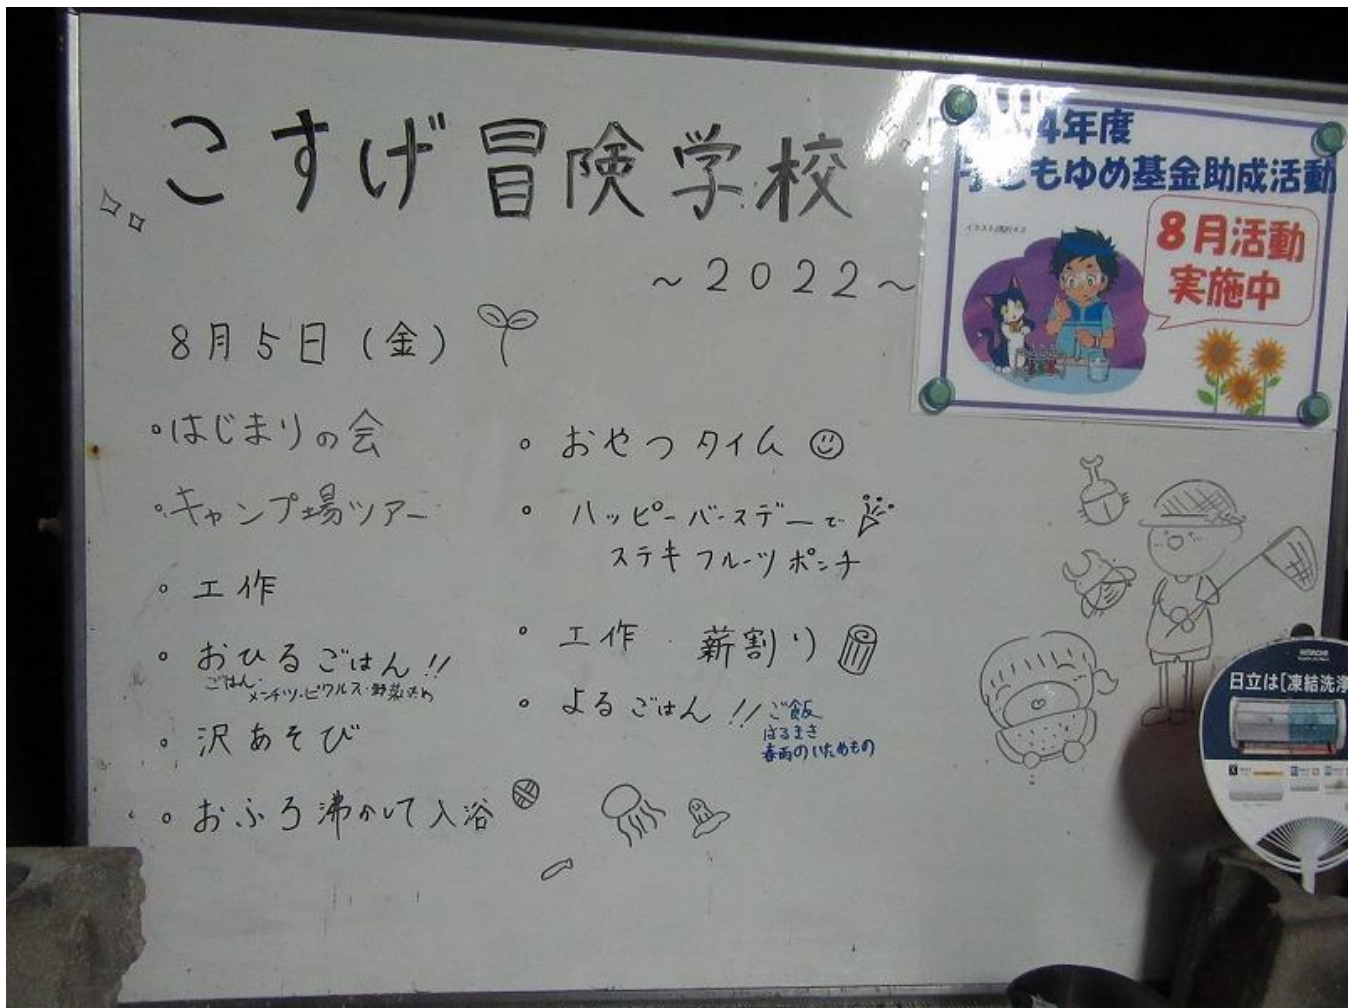 こすげ冒険学校
～2022～
8月5日(金)
・はじまりの会
・キャンプ場ツアー
・工作
・おひるごはん!!
ごはん・
メンチカツ・ピクルス・野菜炒め
・沢あそび
・おふろ沸かして入浴
・おやつタイム
・ハッピーバースデーで
ステキフルーツポンチ
・工作・薪割り
・よるごはん!!
ご飯
はるまき
春雨のいためもの
4年度
子どもゆめ基金助成活動
8月活動
実施中
HITACHI
日立は[凍結洗浄